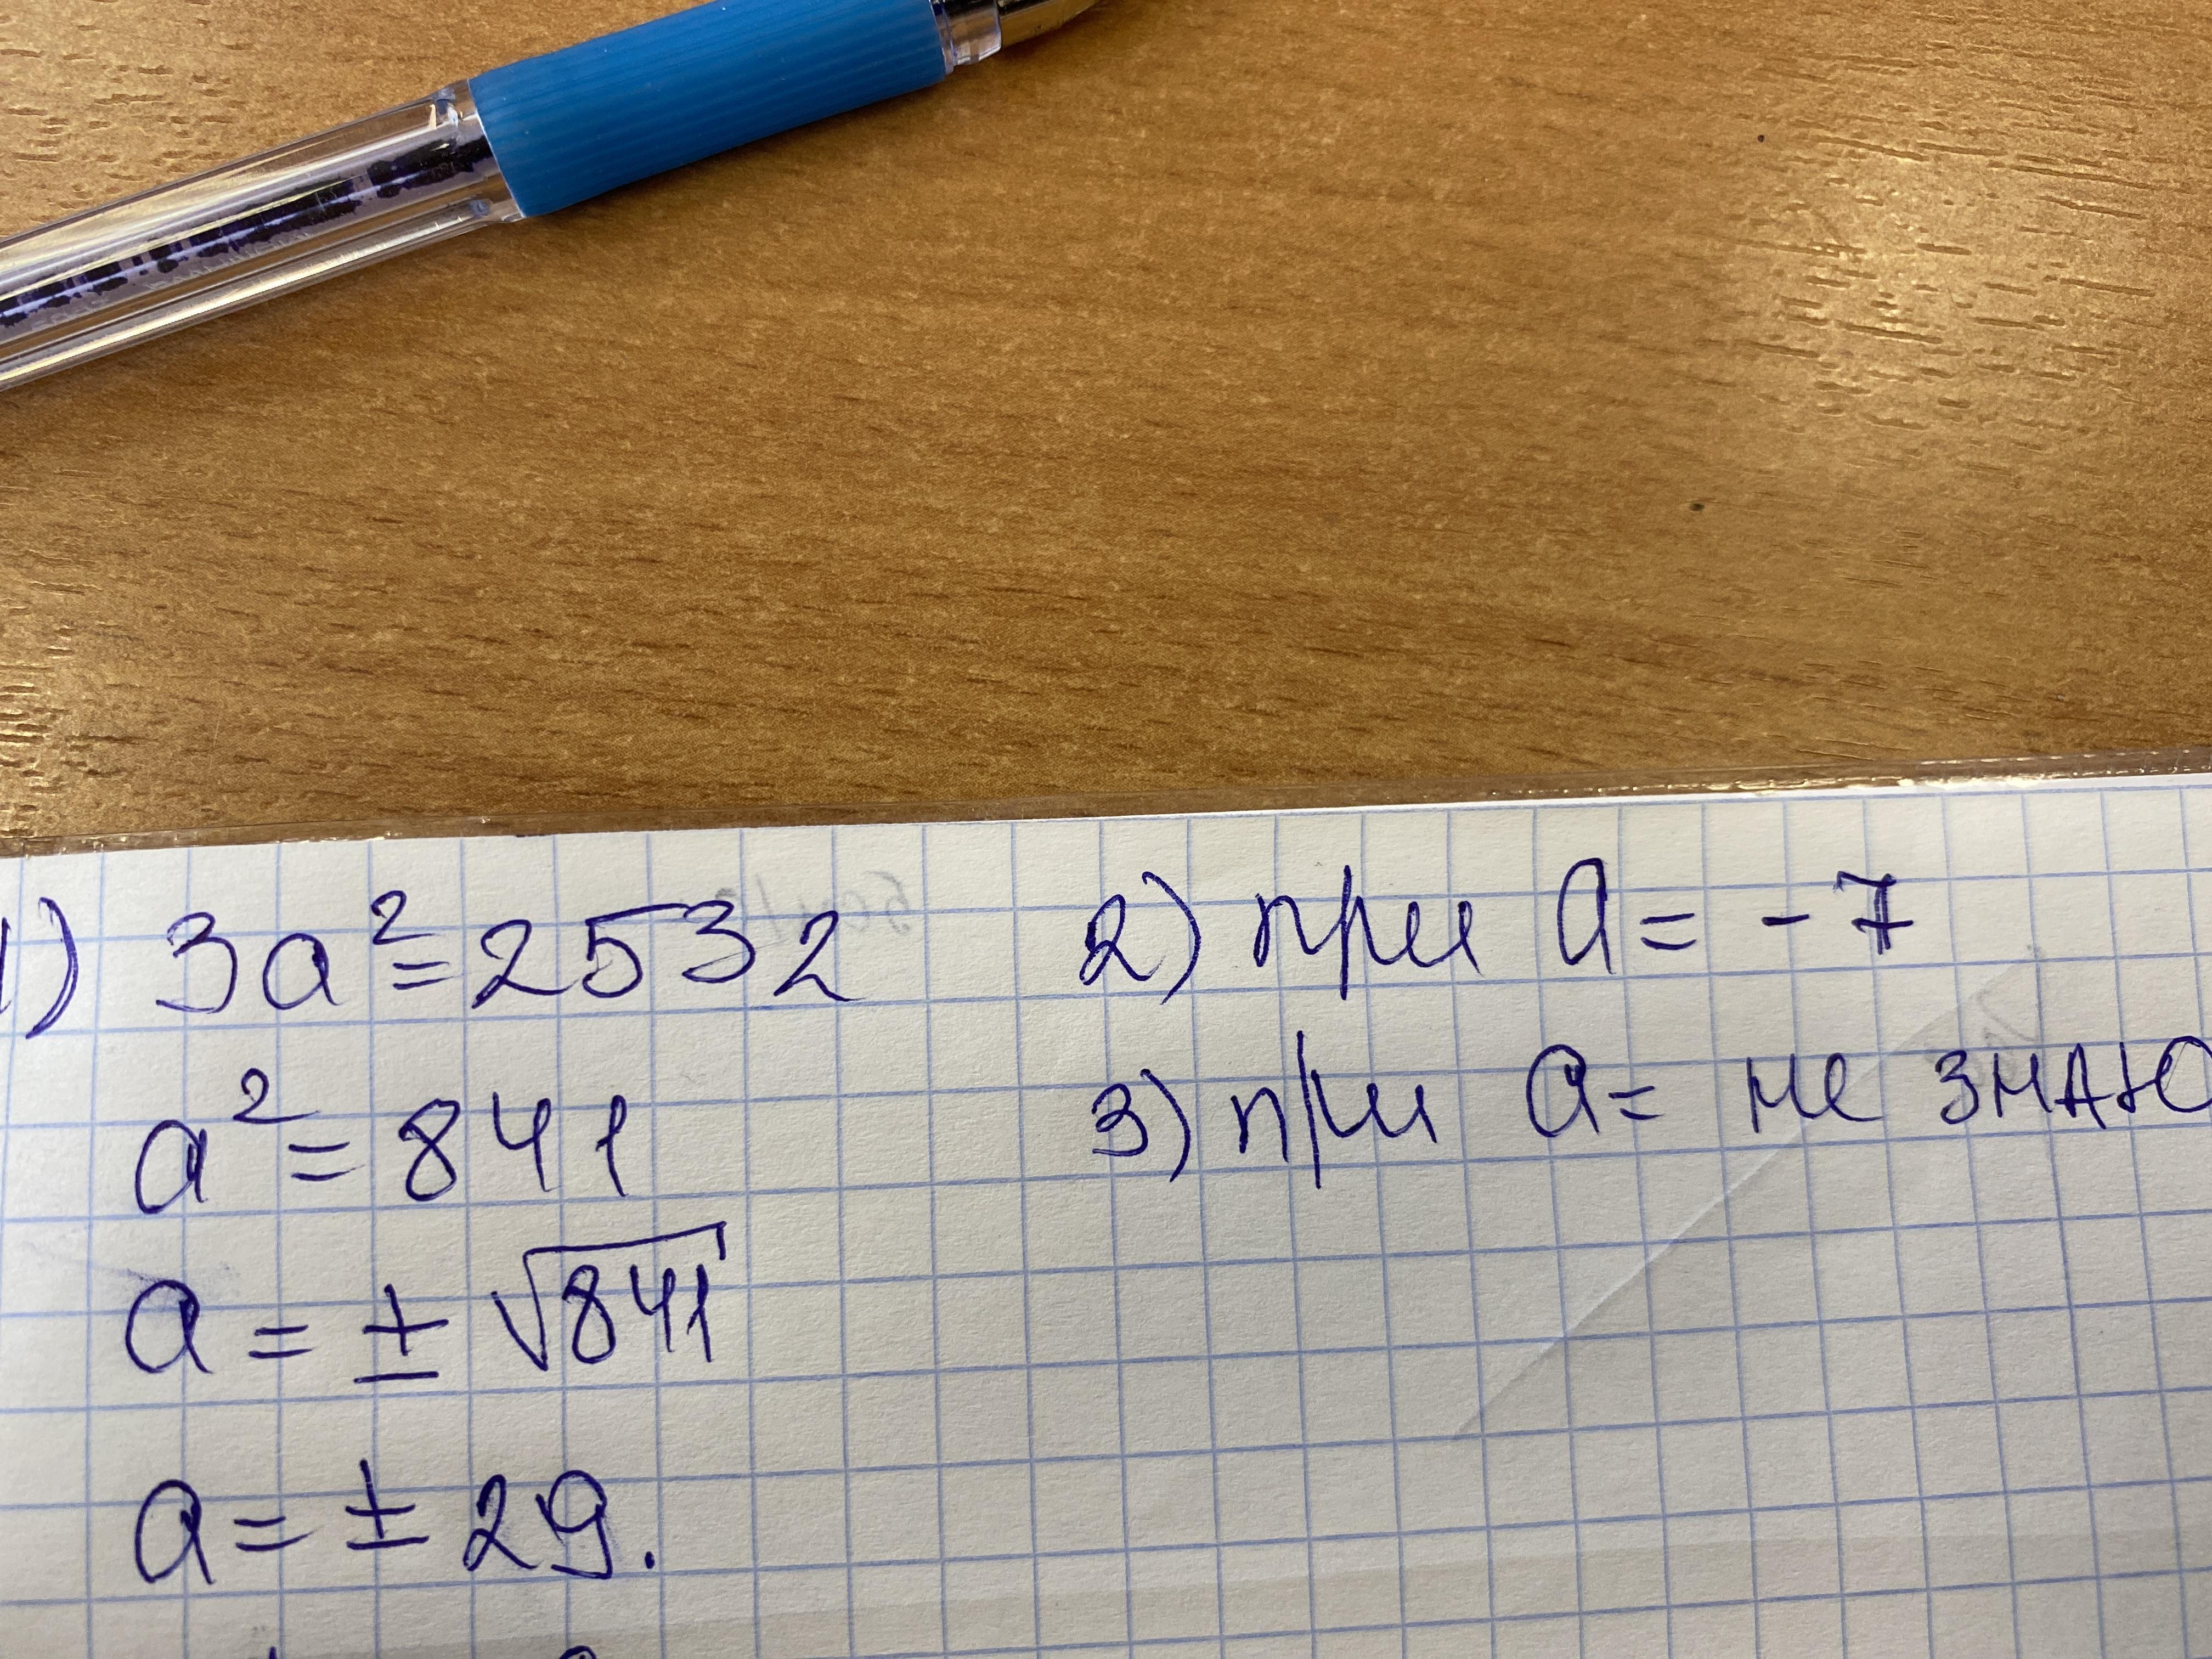 1) 3a²=2532
a²=841
a=±√841
a=±29.
2) при a=-7
3) при a= не знаю